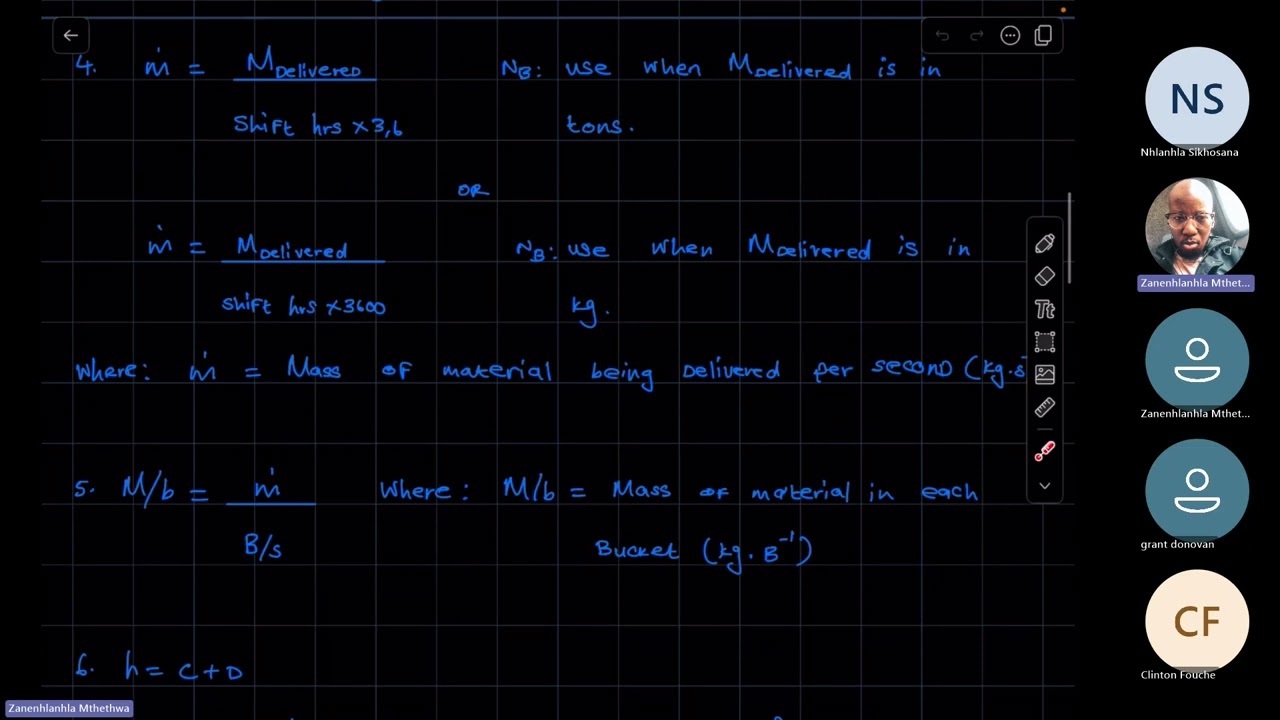 4. ṁ = M Delivered NB: use when M Delivered is in
Shift hrs ×3,6 tons.
OR
ṁ = M Delivered NB: use when M Delivered is in
Shift hrs ×3600 kg.
Where: ṁ = Mass of material being Delivered per second (kg.s
5. M/b = ṁ Where: M/b = Mass of material in each
B/s Bucket (kg. B⁻¹)
6. h = C + D
Tt
NS
Nhlanhla Sikhosana
Zanenhlanhla Mthet...
Zanenhlanhla Mthet...
grant donovan
CF
Clinton Fouche
Zanenhlanhla Mthethwa